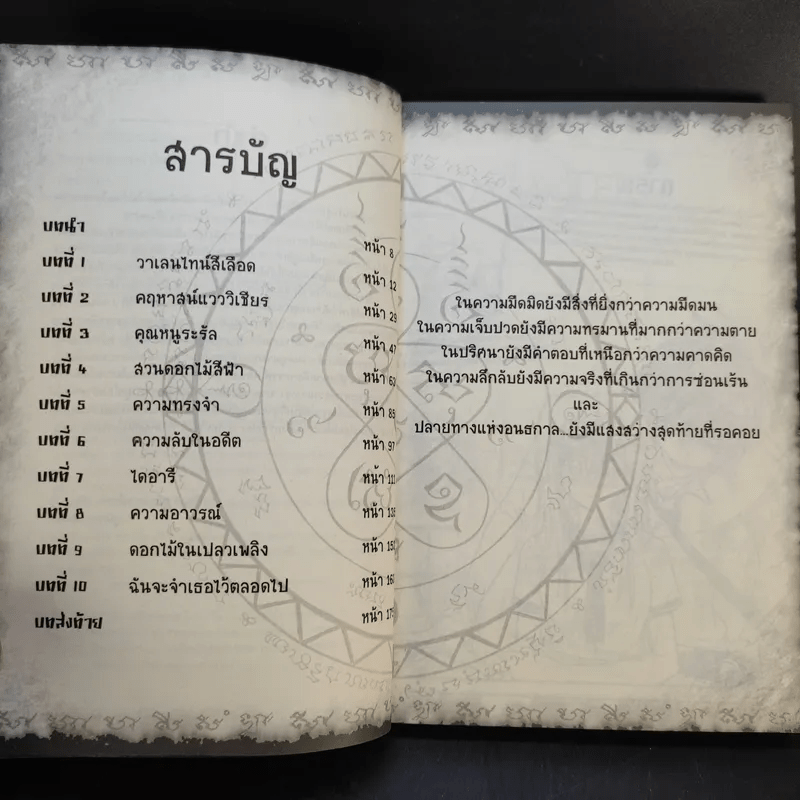 สารบัญ
บทนำ หน้า 8
บทที่ 1 วาเลนไทน์สีเลือด หน้า 12
บทที่ 2 คฤหาสน์แวววิเชียร หน้า 29
บทที่ 3 คุณหนูระรัล หน้า 47
บทที่ 4 สวนดอกไม้สีฟ้า หน้า
บทที่ 5 ความทรงจำ หน้า 85
บทที่ 6 ความลับในอดีต หน้า 97
บทที่ 7 ไดอารี่ หน้า
บทที่ 8 ความอาวรณ์ หน้า
บทที่ 9 ดอกไม้ในเปลวเพลิง หน้า
บทที่ 10 ฉันจะจำเธอไว้ตลอดไป หน้า
บทส่งท้าย หน้า
ในความมืดมิดยังมีสิ่งที่ยิ่งกว่าความมืดมน
ในความเจ็บปวดยังมีความทรมานที่มากกว่าความตาย
ในปริศนายังมีคำตอบที่เหนือกว่าความคาดคิด
ในความลึกลับยังมีความจริงที่เกินกว่าการซ่อนเร้น
และ
ปลายทางแห่งอนธกาล...ยังมีแสงสว่างสุดท้ายที่รอคอย